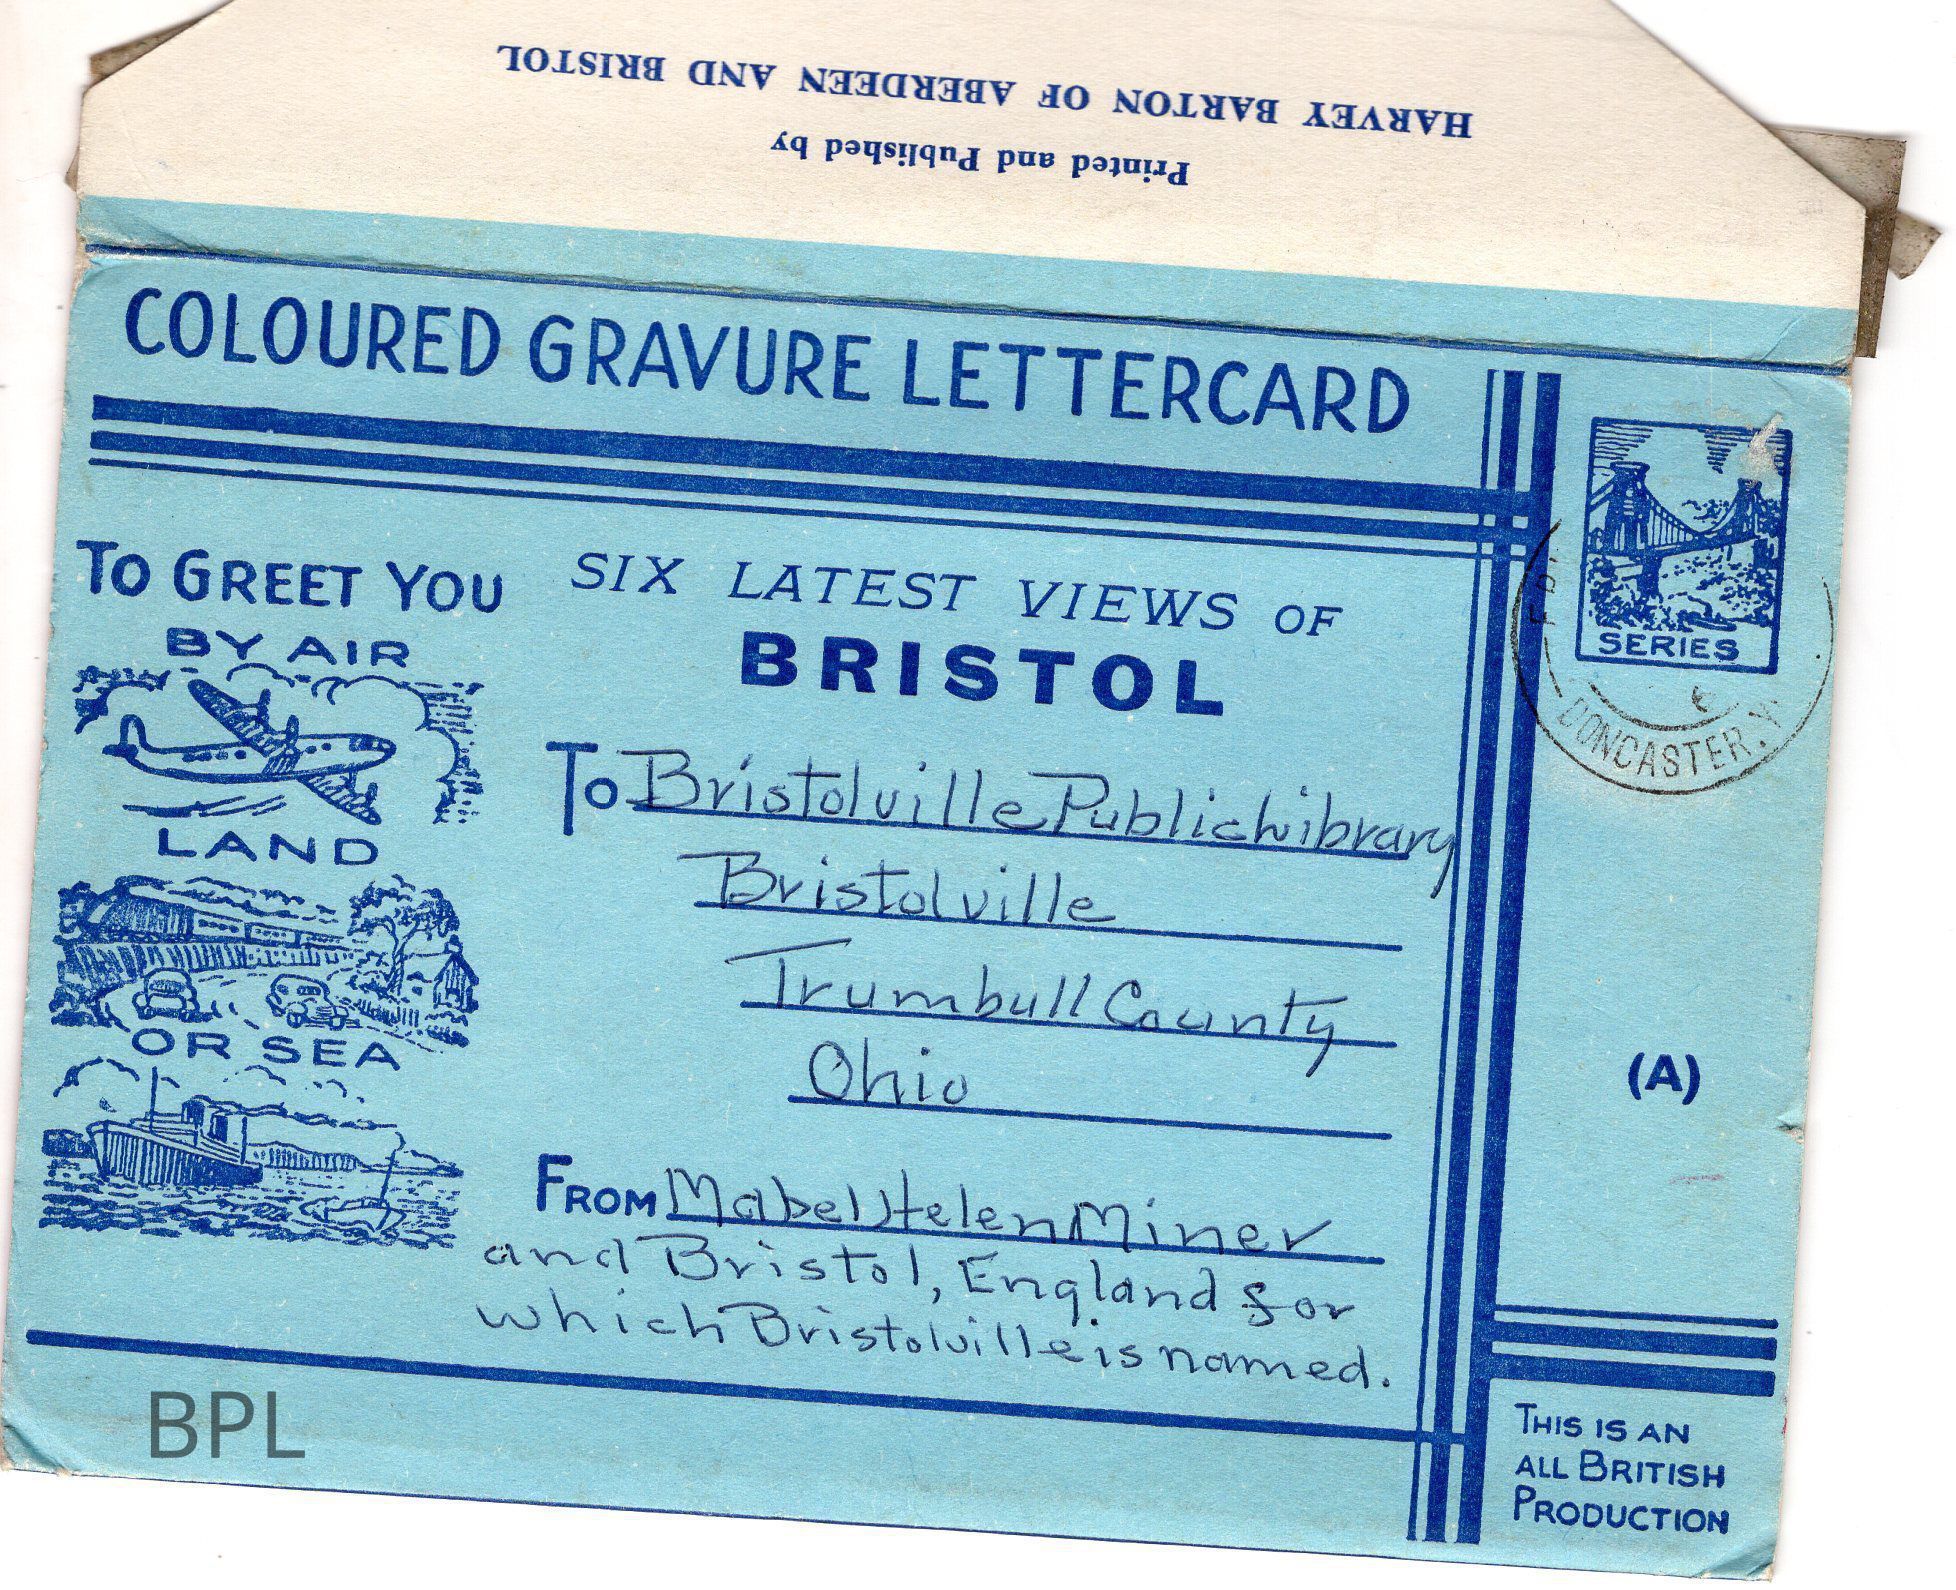 HARVEY BARTON OF ABERDEEN AND BRISTOL
Printed and Published by
COLOURED GRAVURE LETTERCARD
SERIES
DONCASTER. Y.
TO GREET YOU
BY AIR
LAND
OR SEA
SIX LATEST VIEWS OF
BRISTOL
To Bristolville Public Library
Bristolville
Trumbull County
Ohio
FROM Mabel Helen Miner
and Bristol, England for
which Bristolville is named.
(A)
THIS IS AN
ALL BRITISH
PRODUCTION
BPL